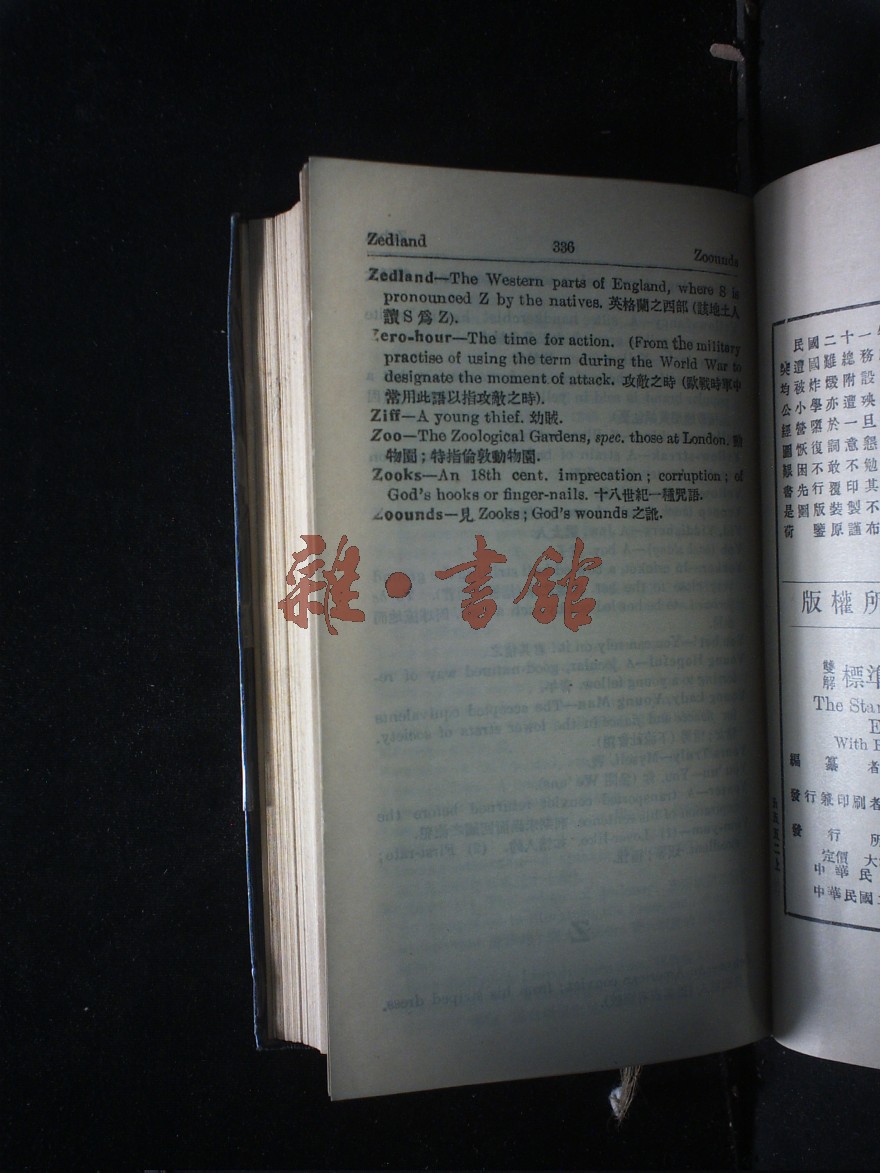 Zedland 336 Zoounds
Zedland—The Western parts of England, where S is
pronounced Z by the natives. 英格蘭之西部 (該地土人
讀 S 爲 Z).
Zero-hour—The time for action. (From the military
practise of using the term during the World War to
designate the moment of attack. 攻敵之時 (歐戰時軍中
常用此語以指攻敵之時).
Ziff—A young thief. 幼賊.
Zoo—The Zoological Gardens, spec. those at London.
物園；特指倫敦動物園.
Zooks—An 18th cent. imprecation; corruption; of
God's hooks or finger-nails. 十八世紀一種咒語.
Zoounds—見 Zooks; God's wounds 之訛.
雜·書館
民國二十一
突遭國難總務
均被炸燬附設
公小學亦遭殃
經營隳於一旦
圖恢復詞意懇
艱困不敢不勉
書先行覆印其
是圖版裝製不
荷鑒原謹布
版權所
雙解 標準
The Stan
E
With E
編纂者
發行兼印刷者
發行所
定價 大
中華民
中華民國